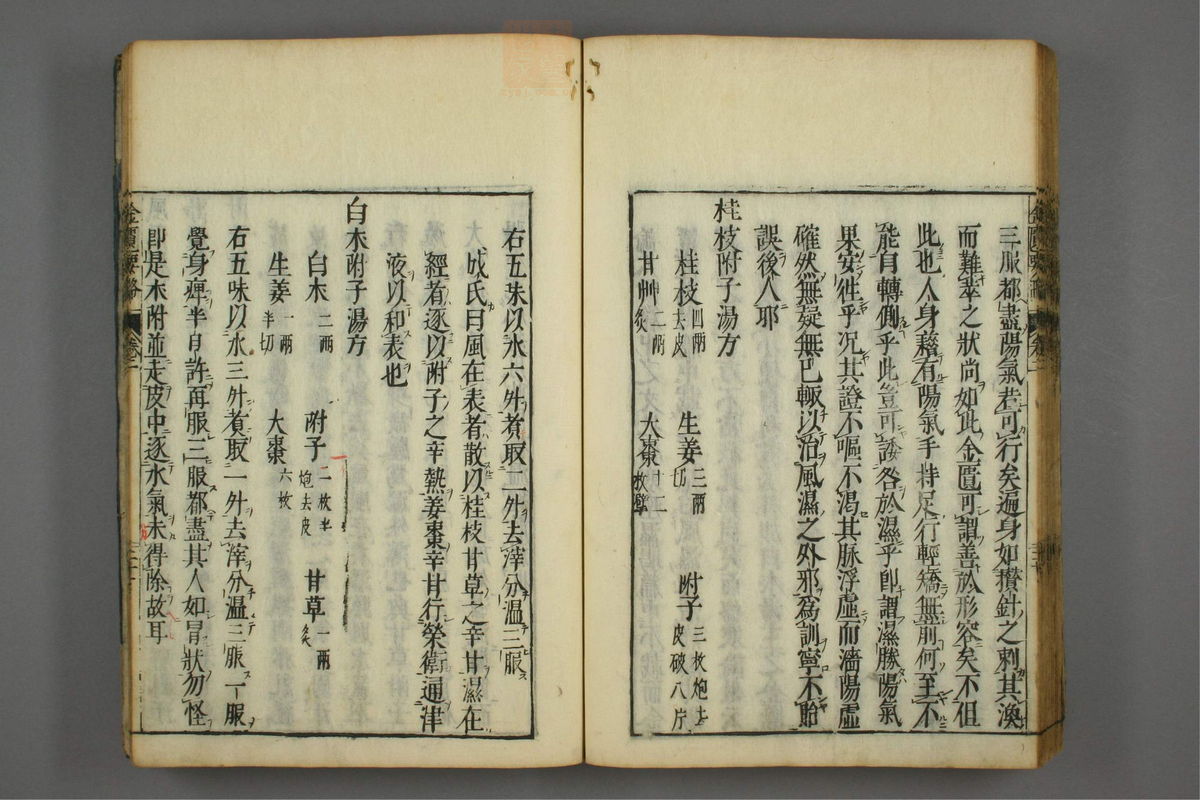 三服都盡陽氣若可行矣遍身如攢針之刺其渙
而難萃之狀尚如此金匱可謂善於形容矣不但
此也人身藉有陽氣手持足行輕矯無前何至不
能自轉側乎此豈可諉咎於濕乎即謂濕勝陽氣
果安往乎况其證不嘔不渴其脉浮虛而濇陽虛
確然無疑無已輙以治風濕之外邪爲訓寧不貽
誤後人耶
桂枝附子湯方
桂枝四兩去皮 生姜三兩切 附子三枚炮去皮破八片
甘艸二兩炙 大棗十二枚擘
右五味以水六升煮取二升去滓分温三服
成氏曰風在表者散以桂枝甘草之辛甘濕在
經者逐以附子之辛熱姜棗辛甘行榮衛通津
液以和表也
白朮附子湯方
白朮二兩 附子二枚半炮去皮 甘草一兩炙
生姜一兩半切 大棗六枚
右五味以水三升煮取一升去滓分温三服一服
覺身痺半日許再服三服都盡其人如冒狀勿怪
即是朮附並走皮中逐水氣未得除故耳
金匱要略 卷二